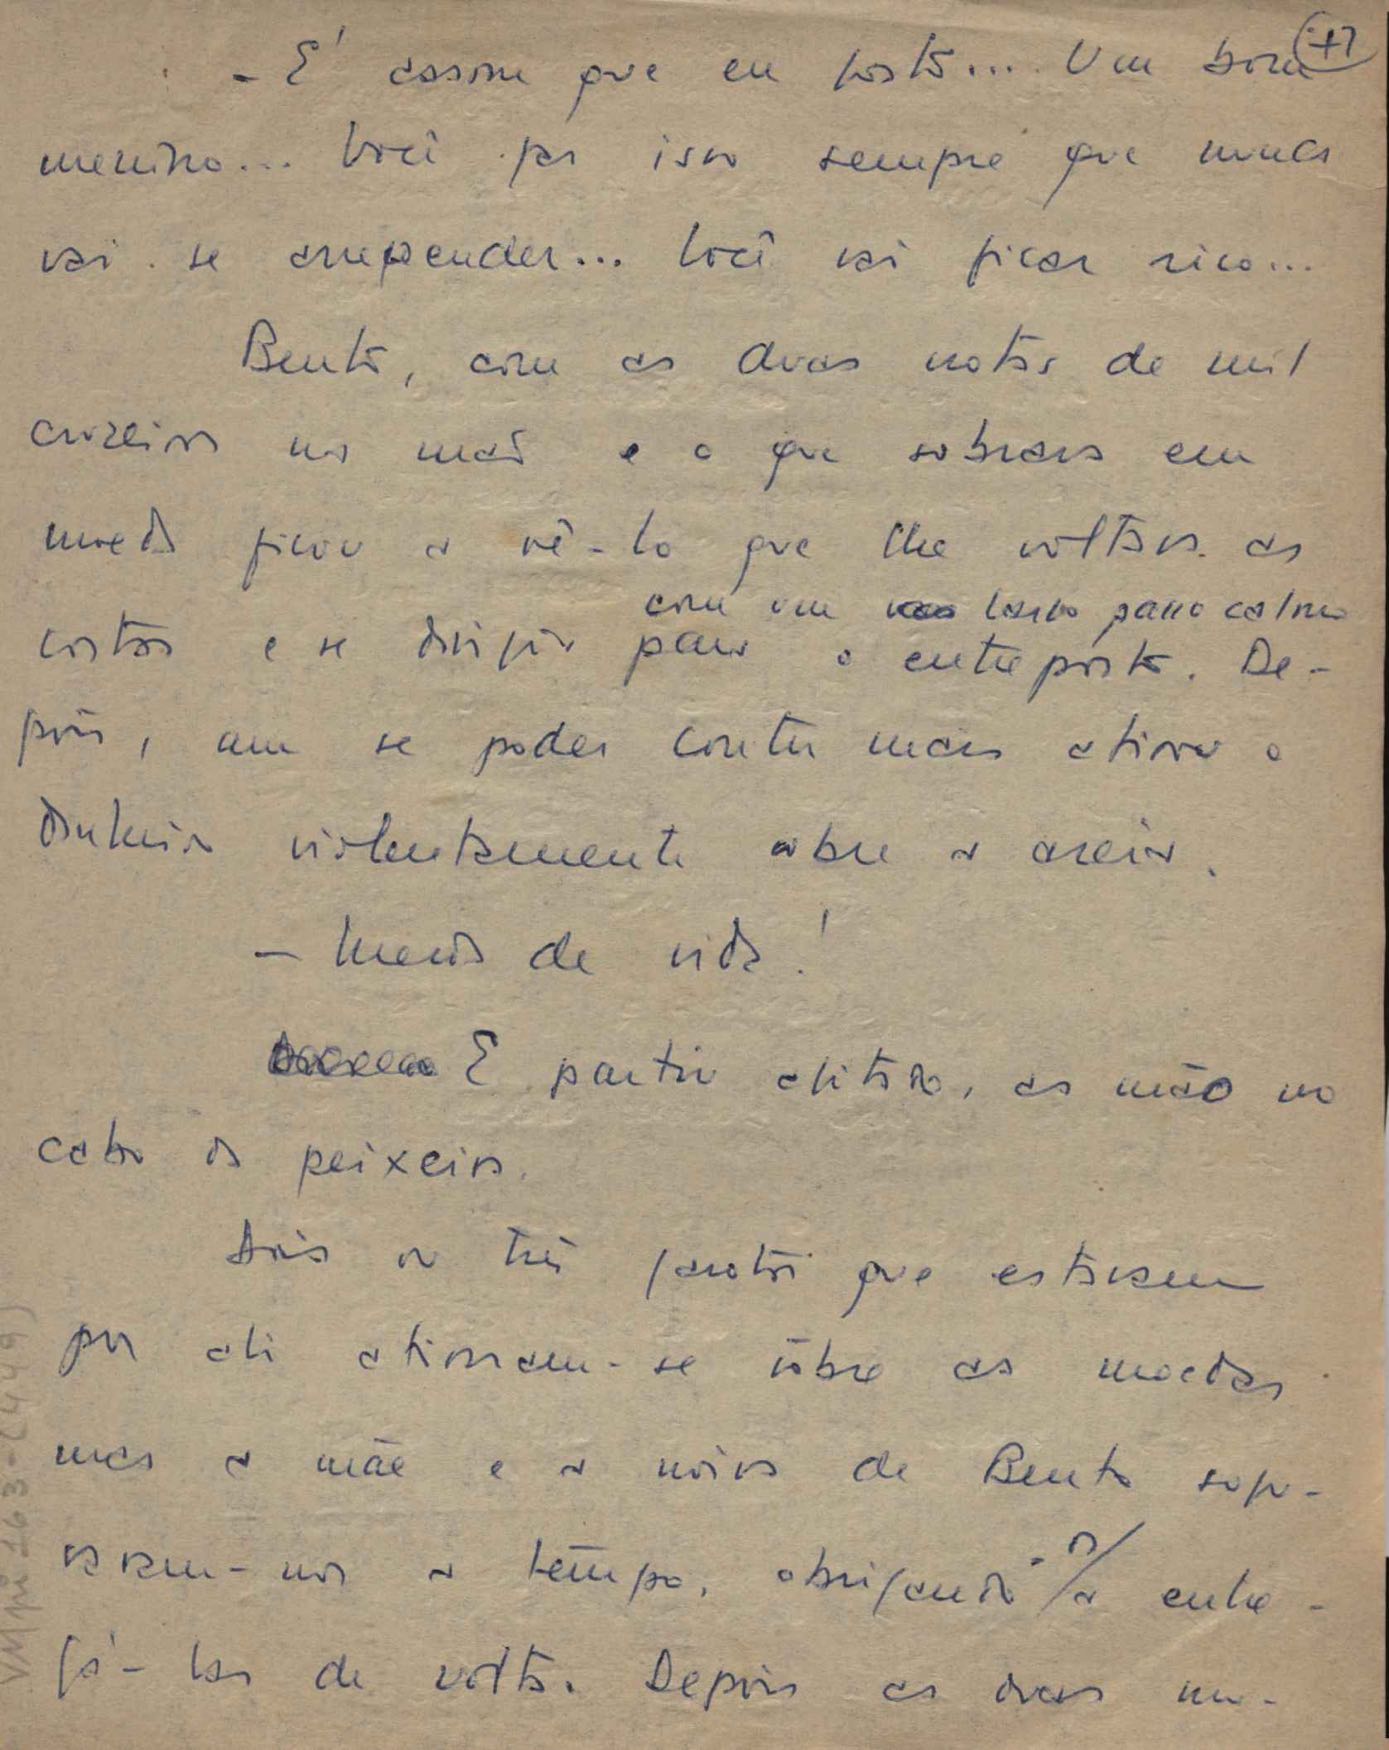 - É assim que eu gosto... Um bom
menino... Você por isso sempre que nunca
vai se arrepender... Você vai ficar rico...
Bento, com as duas notas de mil
cruzeiros na mão e o que sobrara em
moeda ficou a vê-lo que lhe voltava as
com um largo passo calmo
costas e se dirigir para o entreposto. De-
pois, sem se poder conter mais atirou o
dinheiro violentamente sôbre a areia.
- Merda de vida!
E partiu agitado, as mão no
cabo da peixeira.
Dois ou três garotos que estavam
por ali atiraram-se sôbre as moedas
mas a mãe e a noiva de Bento
a tempo, obrigando-os a entre-
gá-las de volta. Depois as duas mu-
VMpi 263-(449)